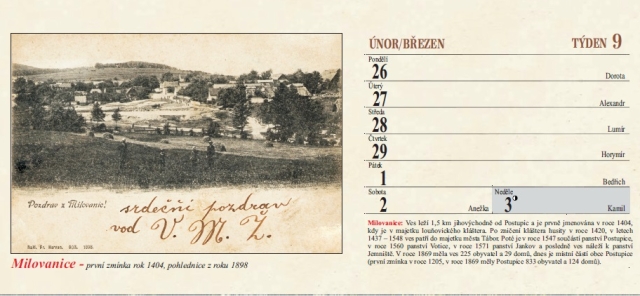 Pozdrav z Milovanic!
srdečný pozdrav
vod V. M. Ž.
Milovanice - první zmínka rok 1404, pohlednice z roku 1898
ÚNOR/BŘEZEN TÝDEN 9
Pondělí
26 Dorota
Úterý
27 Alexandr
Středa
28 Lumír
Čtvrtek
29 Horymír
Pátek
1 Bedřich
Sobota
2 Anežka
Neděle
3 Kamil
Milovanice: Ves leží 1,5 km jihovýchodně od Postupic a je prvně jmenována v roce 1404,
kdy je v majetku louňovického kláštera. Po zničení kláštera husity v roce 1420, v letech
1437 – 1548 ves patří do majetku města Tábor. Poté je v roce 1547 součástí panství Postupice,
v roce 1560 panství Votice, v roce 1571 panství Jankov a posledně ves náleží k panství
Jemniště. V roce 1869 měla ves 225 obyvatel a 29 domů, dnes je místní částí obce Postupice
(první zmínka v roce 1205, v roce 1869 měly Postupice 833 obyvatel a 124 domů).